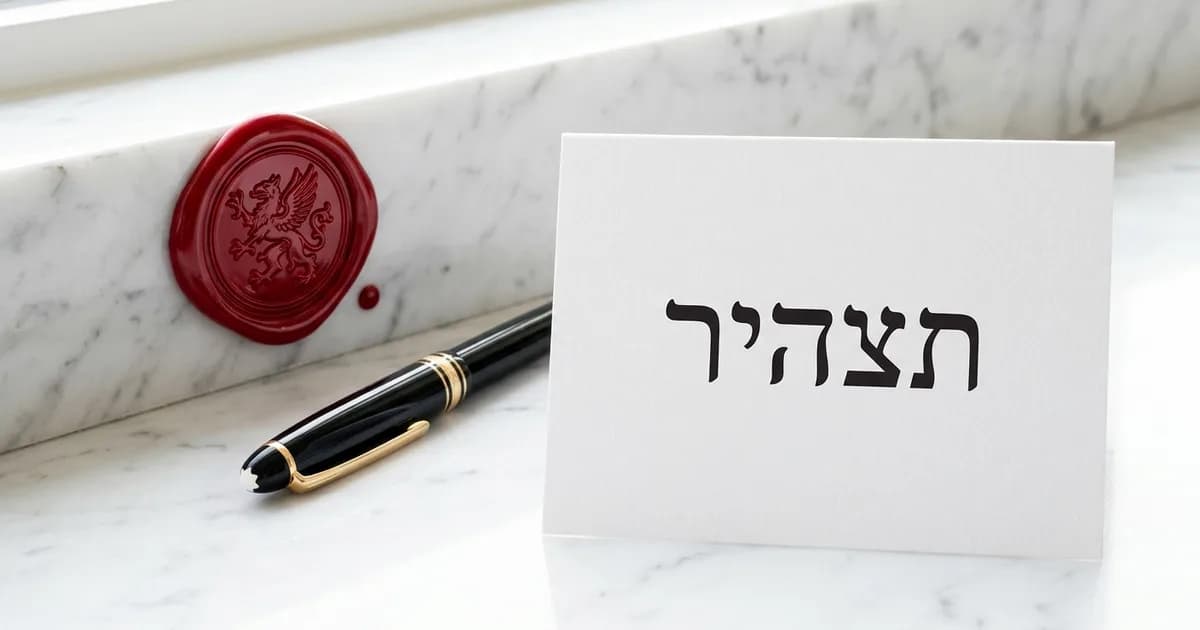 תצהיר